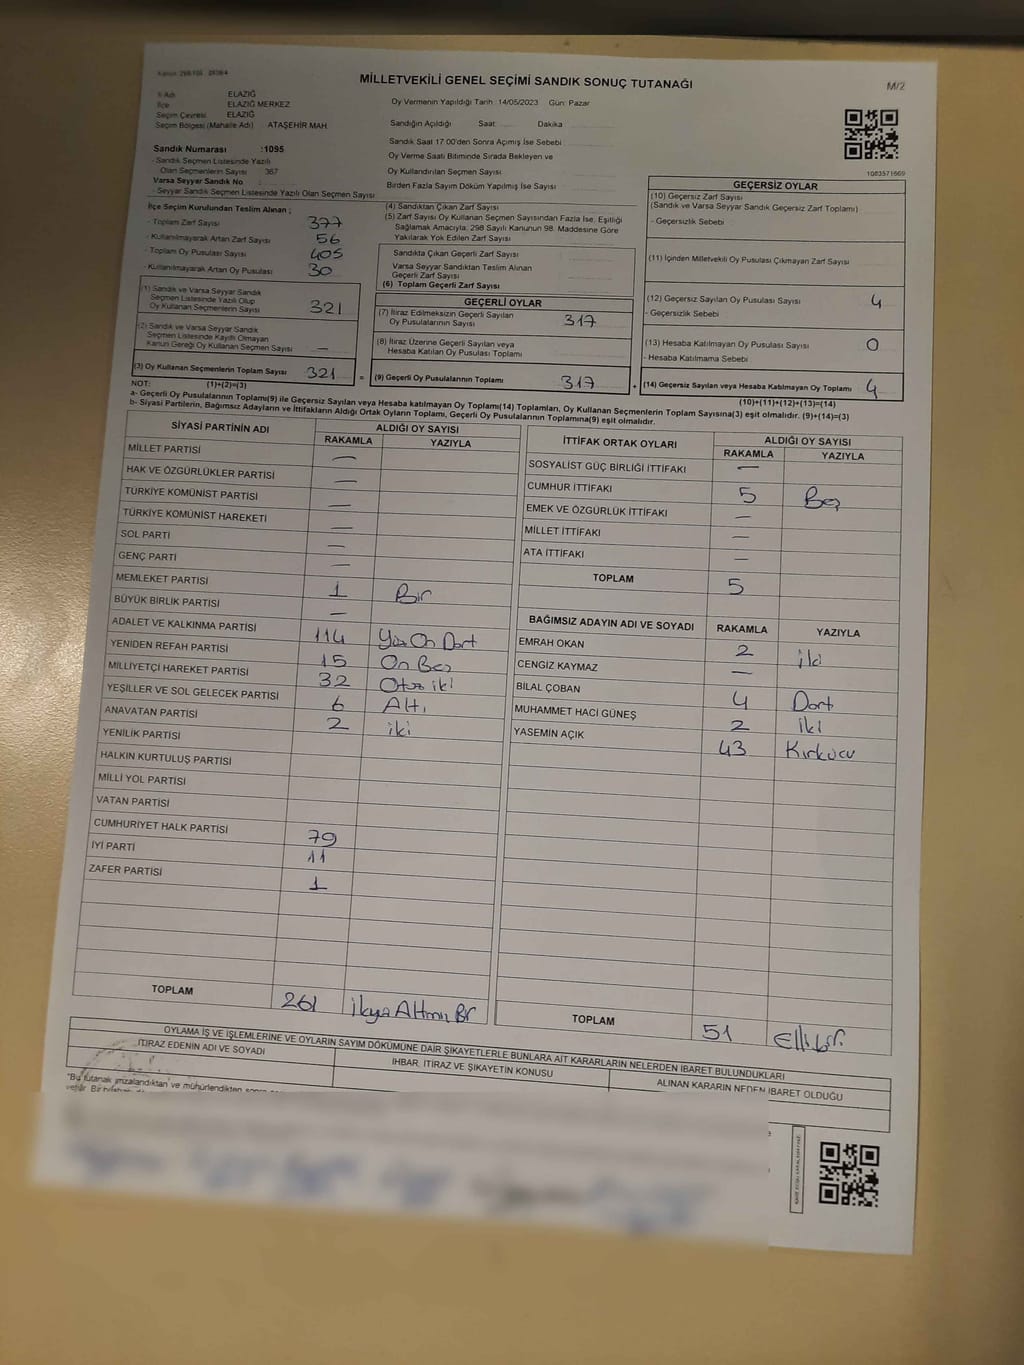 MİLLETVEKİLİ GENEL SEÇİMİ SANDIK SONUÇ TUTANAĞI
M/2
İl Adı ELAZIĞ
İlçe ELAZIĞ MERKEZ
Seçim Çevresi ELAZIĞ
Seçim Bölgesi (Mahalle Adı) ATAŞEHİR MAH.
Oy Vermenin Yapıldığı Tarih :14/05/2023 Gün: Pazar
Sandığın Açıldığı Saat Dakika
Sandık Saat 17:00'den Sonra Açımış İse Sebebi
Oy Verme Saati Bitiminde Sırada Bekleyen ve
Oy Kullandırılan Seçmen Sayısı
Birden Fazla Sayım Döküm Yapılmış İse Sayısı
Sandık Numarası :1095
- Sandık Seçmen Listesinde Yazılı
Olan Seçmenlerin Sayısı 367
Varsa Seyyar Sandık No :
- Seyyar Sandık Seçmen Listesinde Yazılı Olan Seçmen Sayısı
1083571669
İlçe Seçim Kurulundan Teslim Alınan ;
- Toplam Zarf Sayısı 377
- Kullanılmayarak Artan Zarf Sayısı 56
- Toplam Oy Pusulası Sayısı 405
- Kullanılmayarak Artan Oy Pusulası 30
(1) Sandık ve Varsa Seyyar Sandık
Seçmen Listesinde Yazılı Olup
Oy Kullanan Seçmenlerin Sayısı 321
(2) Sandık ve Varsa Seyyar Sandık
Seçmen Listesinde Kayıtlı Olmayan
Kanun Gereği Oy Kullanan Seçmen Sayısı —
(3) Oy Kullanan Seçmenlerin Toplam Sayısı 321 =
(4) Sandıktan Çıkan Zarf Sayısı
(5) Zarf Sayısı Oy Kullanan Seçmen Sayısından Fazla İse, Eşitliği
Sağlamak Amacıyla; 298 Sayılı Kanunun 98. Maddesine Göre
Yakılarak Yok Edilen Zarf Sayısı
Sandıkta Çıkan Geçerli Zarf Sayısı
Varsa Seyyar Sandıktan Teslim Alınan
Geçerli Zarf Sayısı
(6) Toplam Geçerli Zarf Sayısı
GEÇERLİ OYLAR
(7) İtiraz Edilmeksizin Geçerli Sayılan
Oy Pusulalarının Sayısı 317
(8) İtiraz Üzerine Geçerli Sayılan veya
Hesaba Katılan Oy Pusulası Toplamı
(9) Geçerli Oy Pusulalarının Toplamı 317 +
GEÇERSİZ OYLAR
(10) Geçersiz Zarf Sayısı
(Sandık ve Varsa Seyyar Sandık Geçersiz Zarf Toplamı)
- Geçersizlik Sebebi :
(11) İçinden Milletvekili Oy Pusulası Çıkmayan Zarf Sayısı
(12) Geçersiz Sayılan Oy Pusulası Sayısı 4
- Geçersizlik Sebebi
(13) Hesaba Katılmayan Oy Pusulası Sayısı 0
- Hesaba Katılmama Sebebi
(14) Geçersiz Sayılan veya Hesaba Katılmayan Oy Toplamı 4
NOT: (1)+(2)=(3) (10)+(11)+(12)+(13)=(14)
a- Geçerli Oy Pusulalarının Toplamı(9) ile Geçersiz Sayılan veya Hesaba katılmayan Oy Toplamı(14) Toplamları, Oy Kullanan Seçmenlerin Toplam Sayısına(3) eşit olmalıdır. (9)+(14)=(3)
b- Siyasi Partilerin, Bağımsız Adayların ve İttifakların Aldığı Ortak Oyların Toplamı, Geçerli Oy Pusulalarının Toplamına(9) eşit olmalıdır.
SİYASİ PARTİNİN ADI ALDIĞI OY SAYISI
RAKAMLA YAZIYLA
MİLLET PARTİSİ —
HAK VE ÖZGÜRLÜKLER PARTİSİ —
TÜRKİYE KOMÜNİST PARTİSİ —
TÜRKİYE KOMÜNİST HAREKETİ —
SOL PARTİ —
GENÇ PARTİ —
MEMLEKET PARTİSİ 1 Bir
BÜYÜK BİRLİK PARTİSİ —
ADALET VE KALKINMA PARTİSİ 114 Yüz On Dört
YENİDEN REFAH PARTİSİ 15 On Beş
MİLLİYETÇİ HAREKET PARTİSİ 32 Otuz iki
YEŞİLLER VE SOL GELECEK PARTİSİ 6 Altı
ANAVATAN PARTİSİ 2 iki
YENİLİK PARTİSİ
HALKIN KURTULUŞ PARTİSİ
MİLLİ YOL PARTİSİ
VATAN PARTİSİ
CUMHURİYET HALK PARTİSİ 79
İYİ PARTİ 11
ZAFER PARTİSİ 1
TOPLAM 261 İkyüz Altmış Bir
İTTİFAK ORTAK OYLARI ALDIĞI OY SAYISI
RAKAMLA YAZIYLA
SOSYALİST GÜÇ BİRLİĞİ İTTİFAKI —
CUMHUR İTTİFAKI 5 Beş
EMEK VE ÖZGÜRLÜK İTTİFAKI —
MİLLET İTTİFAKI —
ATA İTTİFAKI —
TOPLAM 5
BAĞIMSIZ ADAYIN ADI VE SOYADI RAKAMLA YAZIYLA
EMRAH OKAN 2 iki
CENGİZ KAYMAZ —
BİLAL ÇOBAN 4 Dört
MUHAMMET HACI GÜNEŞ 2 İki
YASEMİN AÇIK 43 Kırküçü
TOPLAM 51 Ellibir
OYLAMA İŞ VE İŞLEMLERİNE VE OYLARIN SAYIM DÖKÜMÜNE DAİR ŞİKAYETLERLE BUNLARA AİT KARARLARIN NELERDEN İBARET BULUNDUKLARI
İTİRAZ EDENİN ADI VE SOYADI İHBAR, İTİRAZ VE ŞİKAYETİN KONUSU ALINAN KARARIN NEDEN İBARET OLDUĞU
"Bu tutanak imzalandıktan ve mühürlendikten sonra